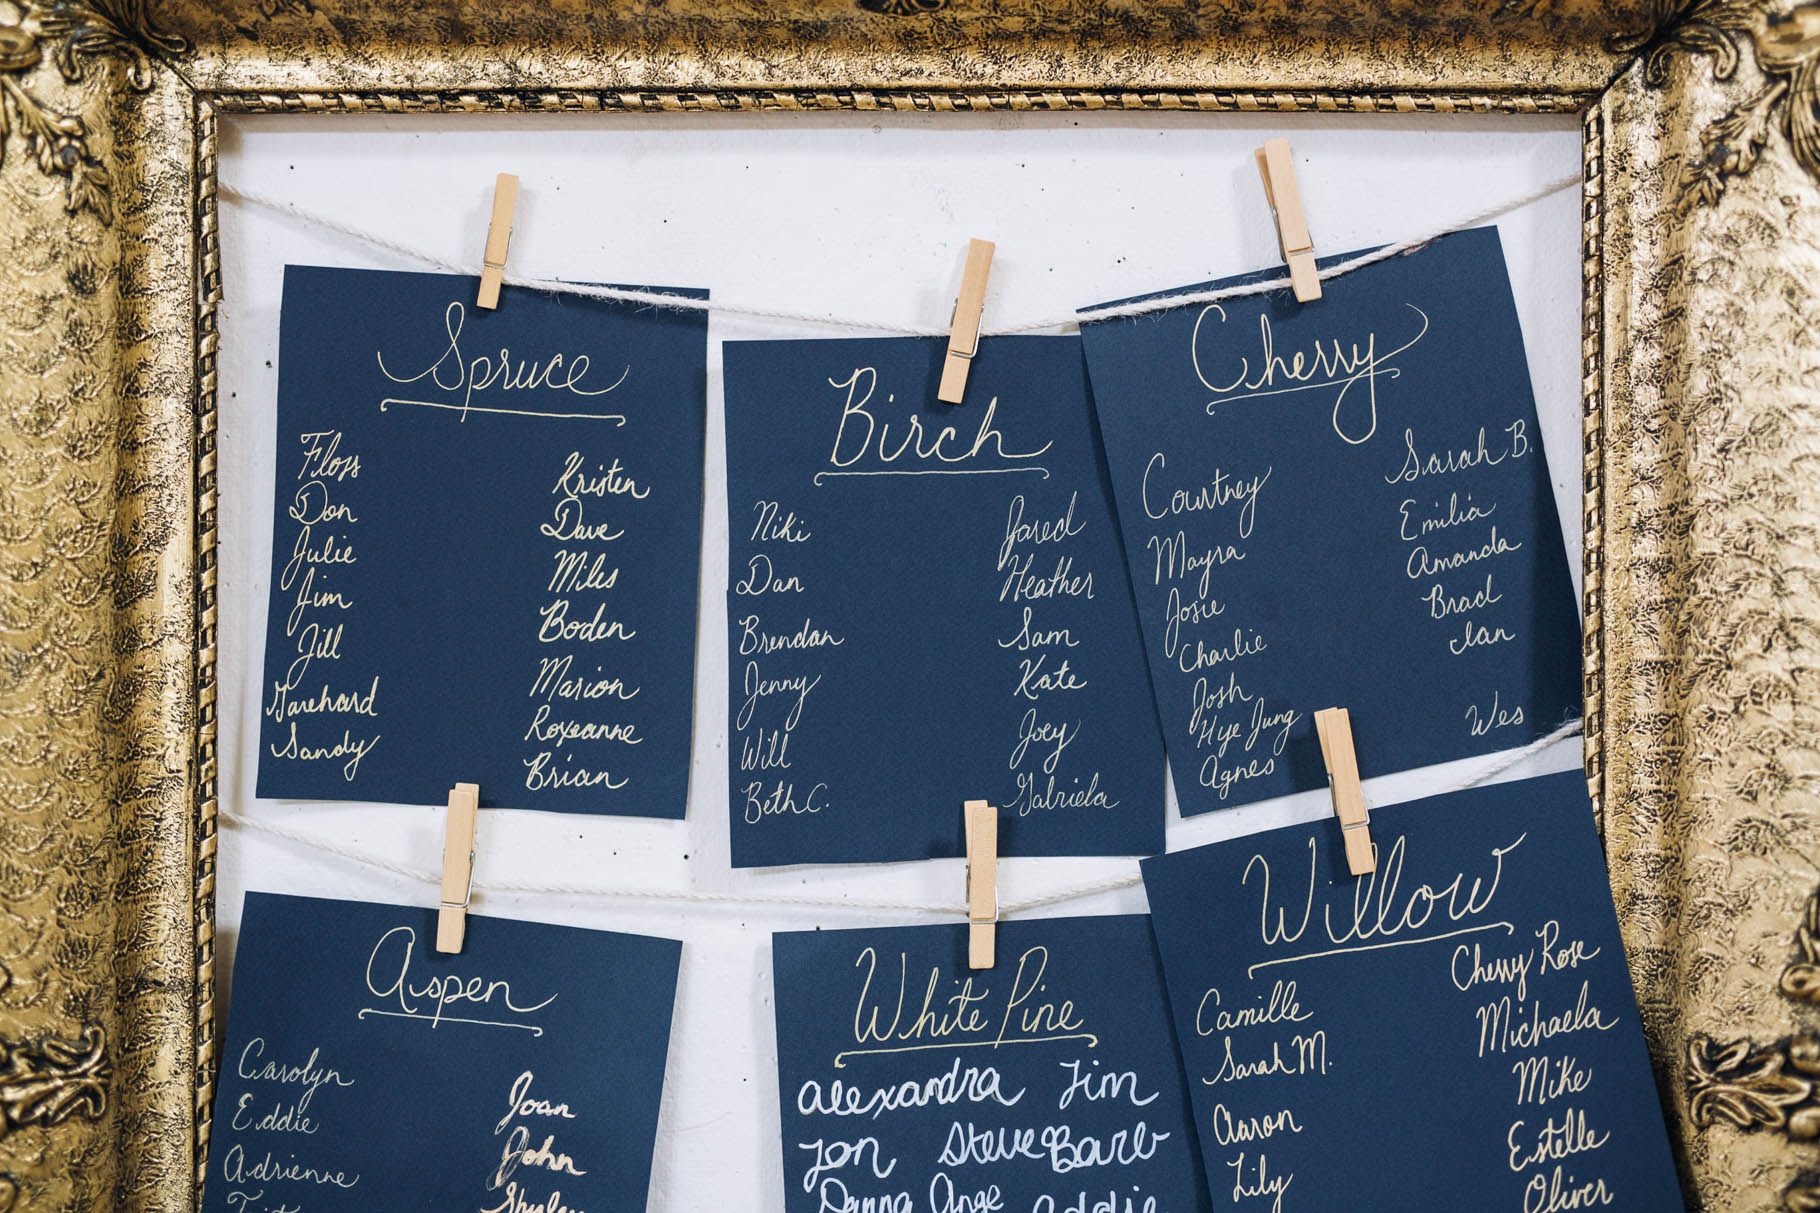 Spruce
Floss
Don
Julie
Jim
Jill
Sandy
Kristen
Dave
Miles
Boden
Marion
Roxeanne
Brian
Birch
Niki
Dan
Brendan
Jenny
Will
Beth C.
Jared
Heather
Sam
Kate
Joey
Gabriela
Cherry
Courtney
Mayra
Josie
Charlie
Josh
Hye Jung
Agnes
Sarah B.
Emilia
Amanda
Brad
Ian
Wes
Aspen
Carolyn
Eddie
Adrienne
Joan
John
White Pine
Alexandra Jim
Jon Steve Barb
Danna Ange Addie
Willow
Camille
Sarah M.
Aaron
Lily
Cherry Rose
Michaela
Mike
Estelle
Oliver